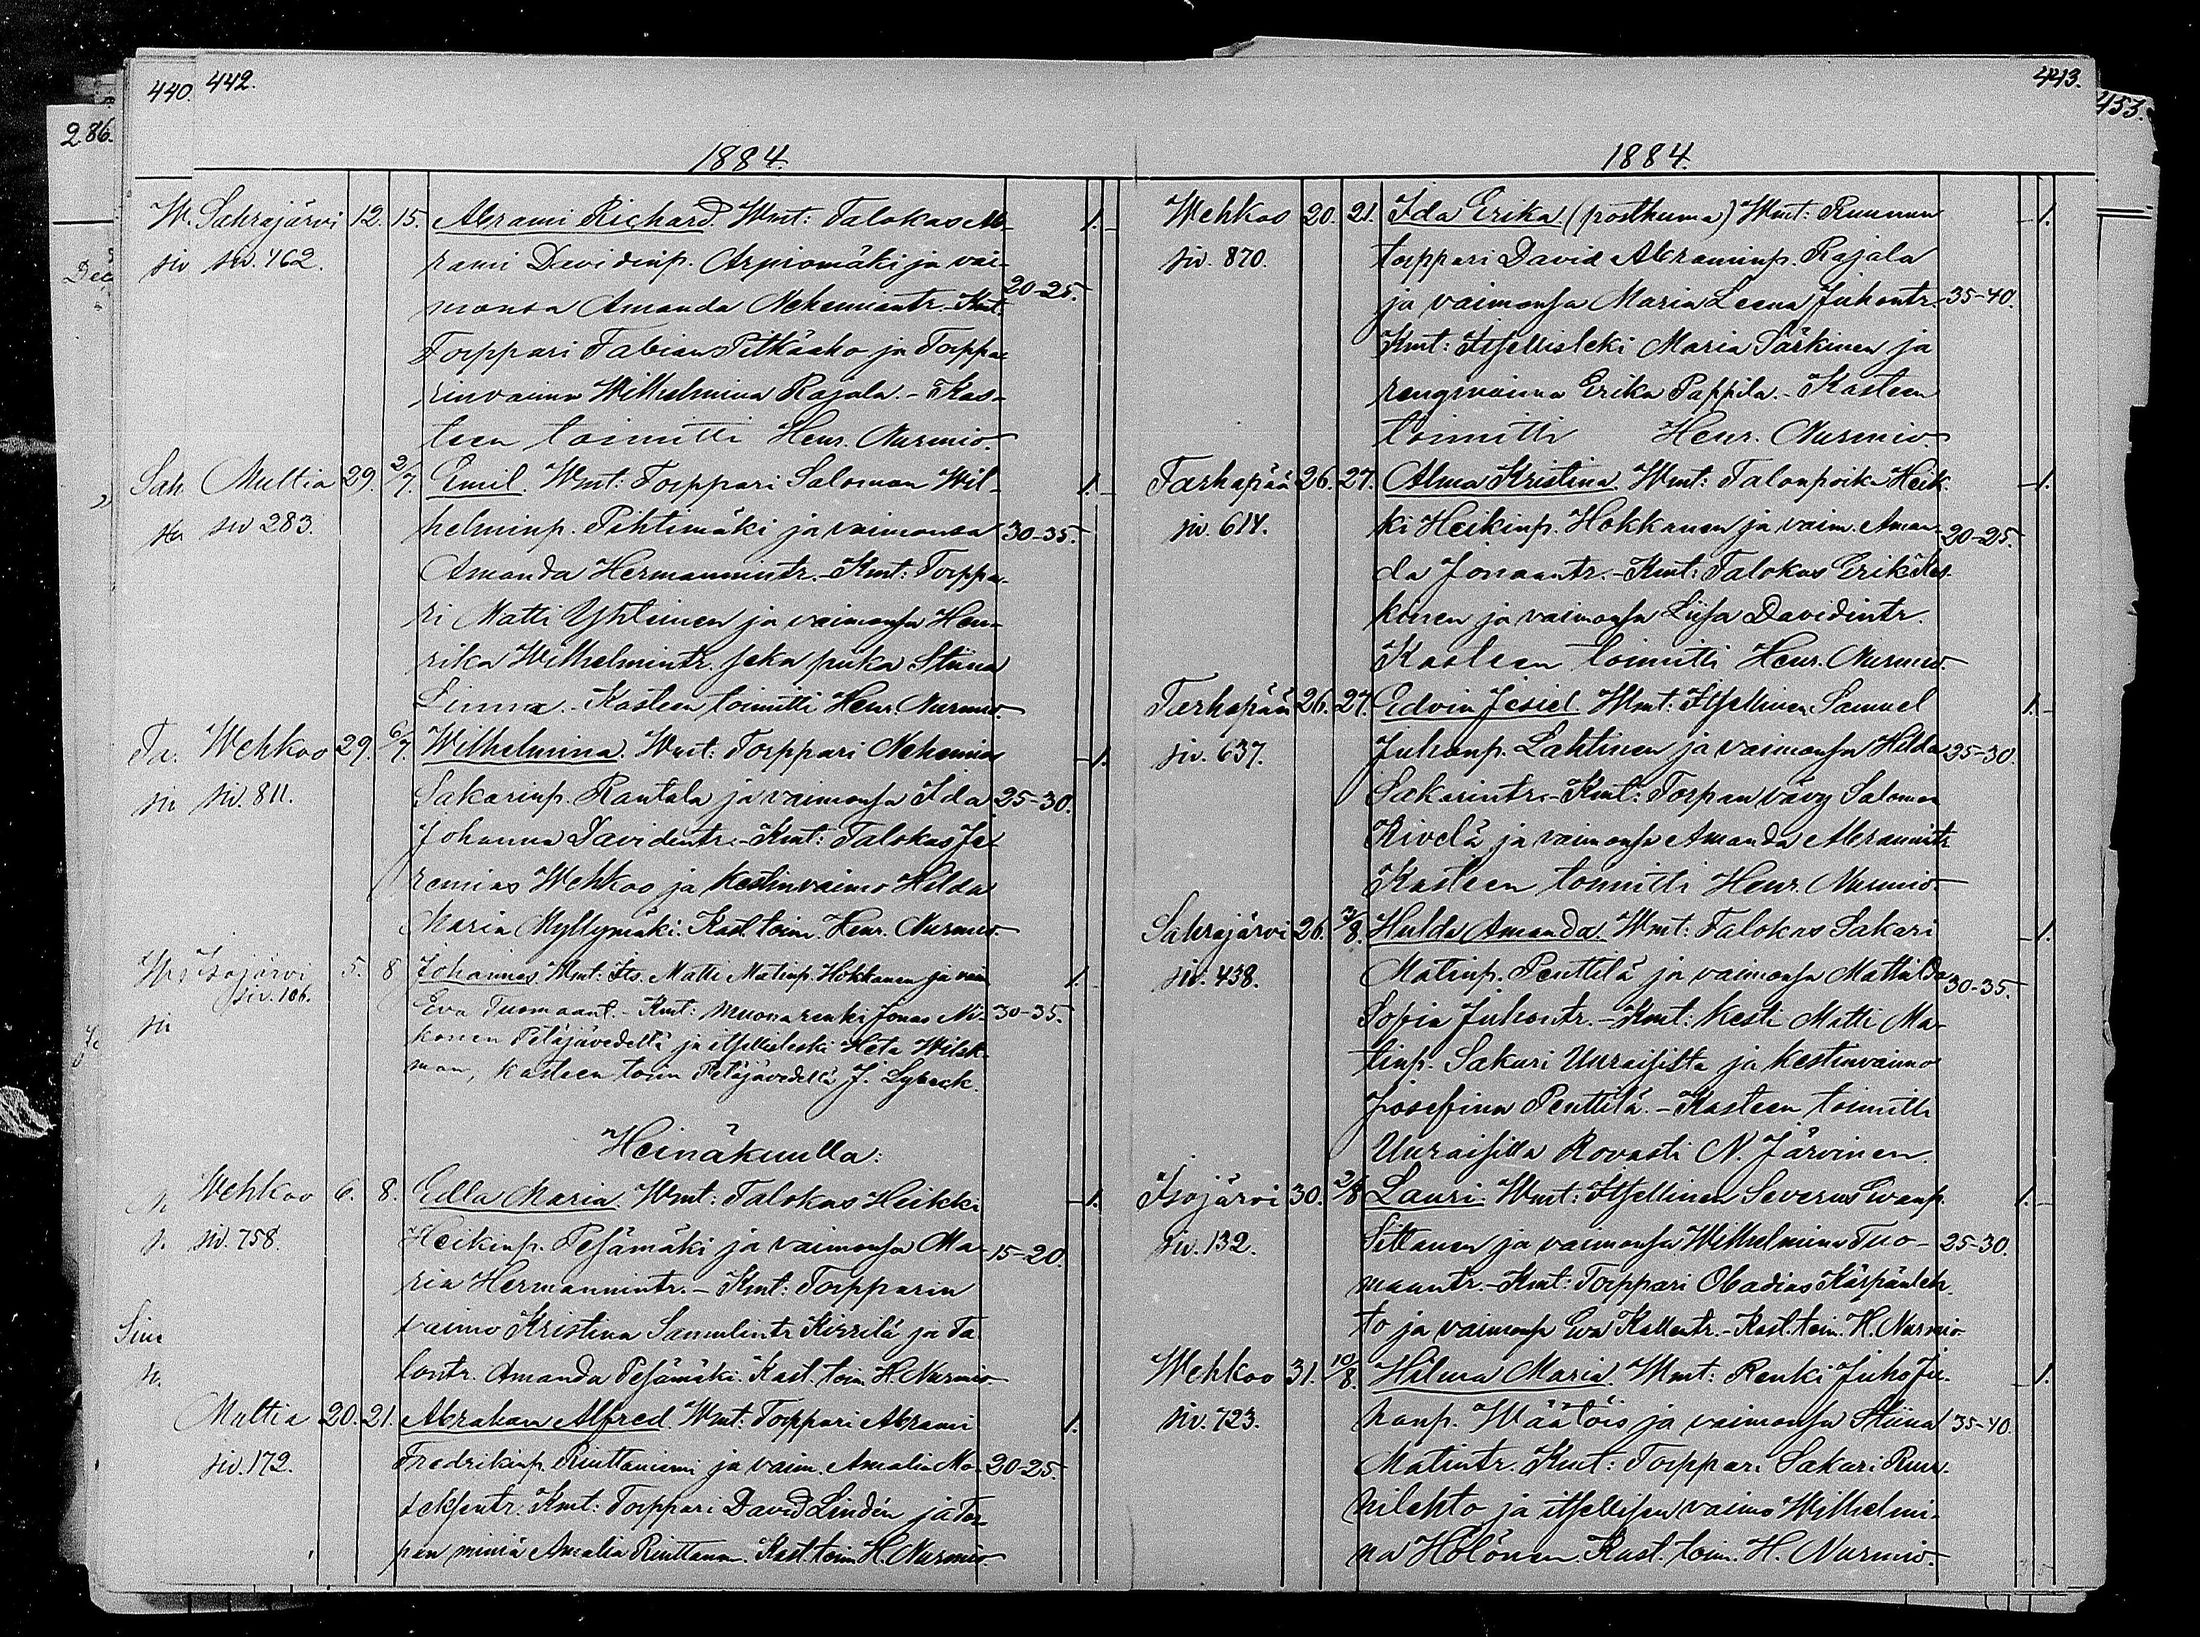 440. 442.
286.
1884.
W. Sahrajärvi 12. 15. Abrami Richard. Wmt: Talokas Ab- 1.
siv siv. 462. rami Davidinp. Arpiomäki ja vai-
Dec monsa Amanda Nehemiantr. Kmt. 20-25.
Torppari Fabian Pitkäaho ja Torppa-
rinvaimo Wilhelmina Rajala. - Kas-
teen toimitti Henr. Nurmio.
Sah Multia 29. 2/7. Emil. Wmt: Torppari Salomon Wil- 1.
siv 283. helminp. Pihtimäki ja vaimonsa 30-35.
Amanda Hermannintr. - Kmt: Torppa-
ri Matti Yhtinen ja vaimonsa Hen-
rika Wilhelmintr. seka piika Stiina
Linna. - Kasteen toimitti Henr. Nurmio.
Ta. Wehkoo 29. 6/7. Wilhelmina. Wmt: Torppari Nehemias 1.
siv. 811. Sakarinp. Rantala ja vaimonsa Ida 25-30.
Johanna Davidintr. - Kmt: Talokas Je-
remias Wehkoo ja Kestinvaimo Hilda
Maria Myllymäki. Kast. toim. Henr. Nurmio.
Isojärvi 5. 8 Johannes Wmt: Its. Matti Matinp. Hokkanen ja vaim 1.
siv. 106. Eva Tuomaant. - Kmt: Muonarenki Jonas Ni- 30-35.
konen Petäjävedeltä ja itsellisleski Heta Wilsk-
man, kasteen toim Petäjävedellä J. Lybeck.
Heinäkuulla:
Wehkoo 6. 8. Edla Maria. Wmt: Talokas Heikki 1.
siv. 758. Heikinp. Pesämäki ja vaimonsa Ma- 15-20.
ria Hermannintr. - Kmt: Torpparin
vaimo Kristina Samulintr. Kivilä ja Ta
lontr. Amanda Pesämäki. Kast. toim. H. Nurmio.
Multia 20. 21. Abraham Alfred. Wmt. Torppari Abrami 1.
siv. 172. Fredrikinp. Riuttaniemi ja vaim. Amalia Ma- 20-25.
Kmt: Torppari David Lindén ja Tor-
pan miniä Amalia Riuttanen. Kast. toim. H. Nurmio
443.
453.
1884.
Wehkoo 20. 21. Ida Erika (posthuma) Wmt: Ruunun 1.
siv. 870. torppari David Abraminp. Rajala
ja vaimonsa Maria Leena Juhontr. 35-40.
Kmt: Itsellisleki Maria Särkinen ja
renginvaimo Erika Pappila. - Kasteen
toimitti Henr. Nurmio
Tarhapää 26. 27. Alma Kristina. Wmt: Talonpoika Heik- 1.
siv. 614. ki Heikinp. Hokkanen ja vaim. Aman- 20-25.
da Jonaantr. - Kmt: Talokas Erik Kos-
kinen ja vaimonsa Liisa Davidintr.
Kasteen toimitti Henr. Nurmio.
Tarhapää 26. 27. Edvin Jesiel. Wmt: Itsellinen Samuel 1.
siv. 637. Juhonp. Lahtinen ja vaimonsa Hilda 25-30.
Sakarintr. - Kmt: Torpan vävy Salomon
Kivelä ja vaimonsa Amanda Abramintr
Kasteen toimitti Henr. Nurmio.
Sahrajärvi 26. 3/8. Hulda Amanda. Wmt: Talokas Sakari 1.
siv. 438. Matinp. Penttilä ja vaimonsa Mathilda 30-35.
Sofia Juhontr. - Kmt: Kesti Matti Ma-
tinp. Sakari Uuraisista ja kestinvaimo
Josefina Penttilä. - Kasteen toimitti
Uuraisilla Rovasti N. Järvinen.
Isojärvi 30. 2/8 Lauri. Wmt: Itsellinen Severus Ewanp. 1.
siv. 132. Siltanen ja vaimonsa Wilhelmina Tuo- 25-30.
maantr. - Kmt: Torppari Obadias Kärpänleh-
to ja vaimonsa Eva Kallentr. - Kast. toim. H. Nurmio
Wehkoo 31. 10/8. Hilma Maria. Wmt: Renki Juho Ju- 1.
siv. 723. honp. Wäätöis ja vaimonsa Stiina 35-40.
Matintr. Kmt: Torppari Sakari Ruu-
nilehto ja itsellisen vaimo Wilhelmi-
na Hölönen. Kast. toim. H. Nurmio.